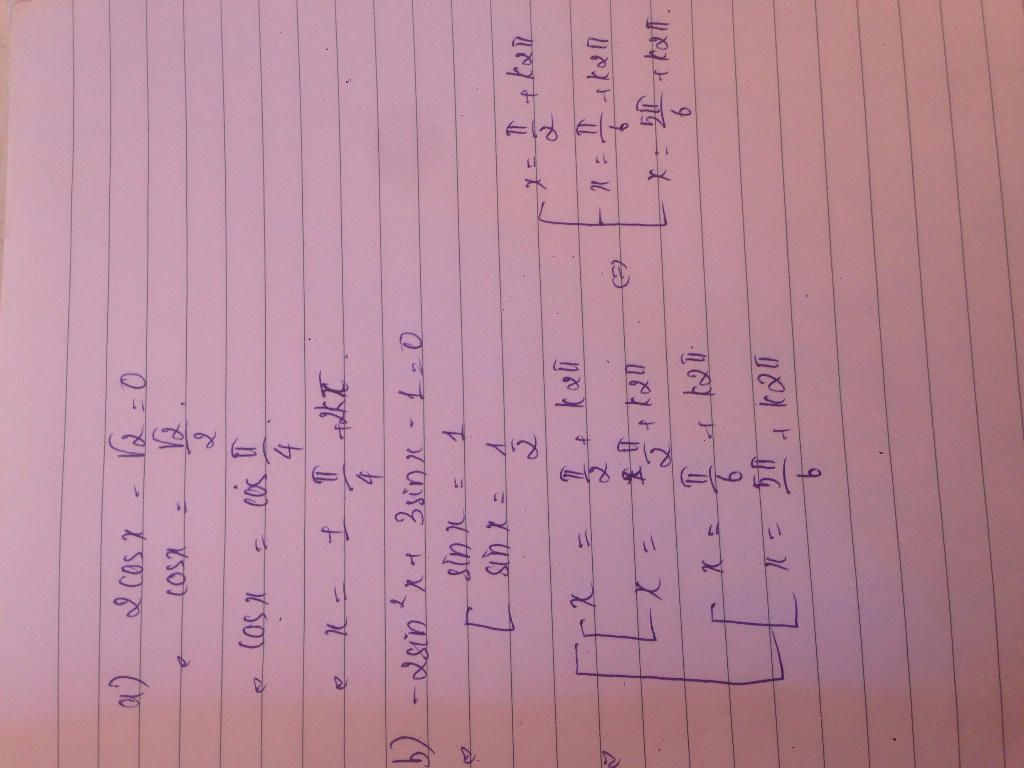 a) 2cosx - √2 = 0
⇔ cosx = √2/2.
⇔ cosx = cos π/4
⇔ x = ± π/4 + k2π.
b) -2sin²x + 3sinx - 1 = 0
⇔ [ sinx = 1
sinx = 1/2
⇔ [ [ x = π/2 + k2π
x = π/2 + k2π
[ x = π/6 + k2π.
x = 5π/6 + k2π
⇔ [ x = π/2 + k2π
x = π/6 + k2π
x = 5π/6 + k2π.